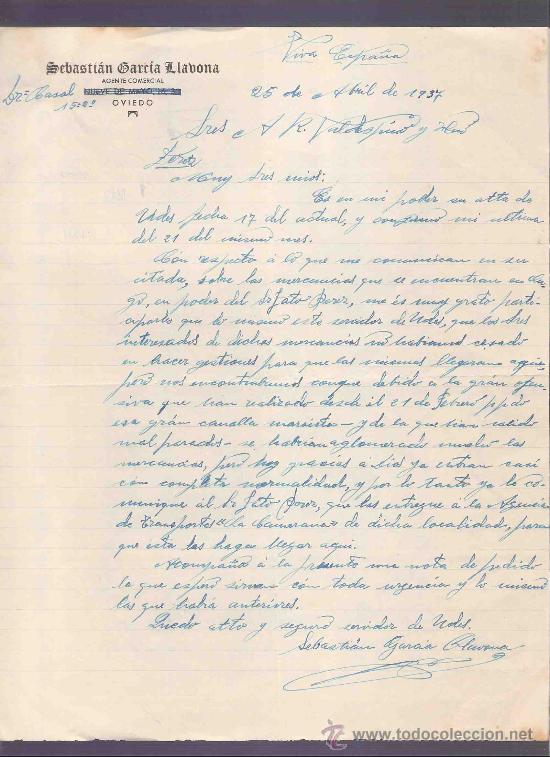 Viva España
Sebastián García Llavona
AGENTE COMERCIAL
NUEVE DE MAYO,
Dr. Casal
15-2º
OVIEDO
25 de Abril de 1937
Sres A R. Valdespino y Hno
Jerez
Muy Sres mios:
Es en mi poder su atta de
Udes fecha 17 del actual, y confirmo mi ultima
del 21 del mismo mes.
Con respecto á lo que me comunican en su
citada, sobre las mercancias que se encuentran en
en poder del Sr Jato me es muy grato parti-
ciparles que lo mismo este servidor de Udes, que los Sres
interesados de dichas mercancias no habiamos cesado
en hacer gestiones para que las mismas llegaran aqui,
pero nos encontrabamos conque debido á la gran ofen-
siva que han realizado desde el 21 de Febrero ppdo
esa gran canalla marxista - y de la que han salido
mal parados - se habian aglomerado muchas
mercancias, pero hoy gracias á Dios ya entran casi
con completa normalidad, y por lo tanto ya le co-
munique al Sr Jato que las entregue á la Agencia
de Transportes "La Camerana" de dicha localidad, para
que esta las haga llegar aqui.
Acompaño á la presente una nota de pedido
la que espero sirvan con toda urgencia y lo mismo
las que habia anteriores.
Quedo atto y seguro servidor de Udes.
Sebastián García Llavona
www.todocoleccion.net